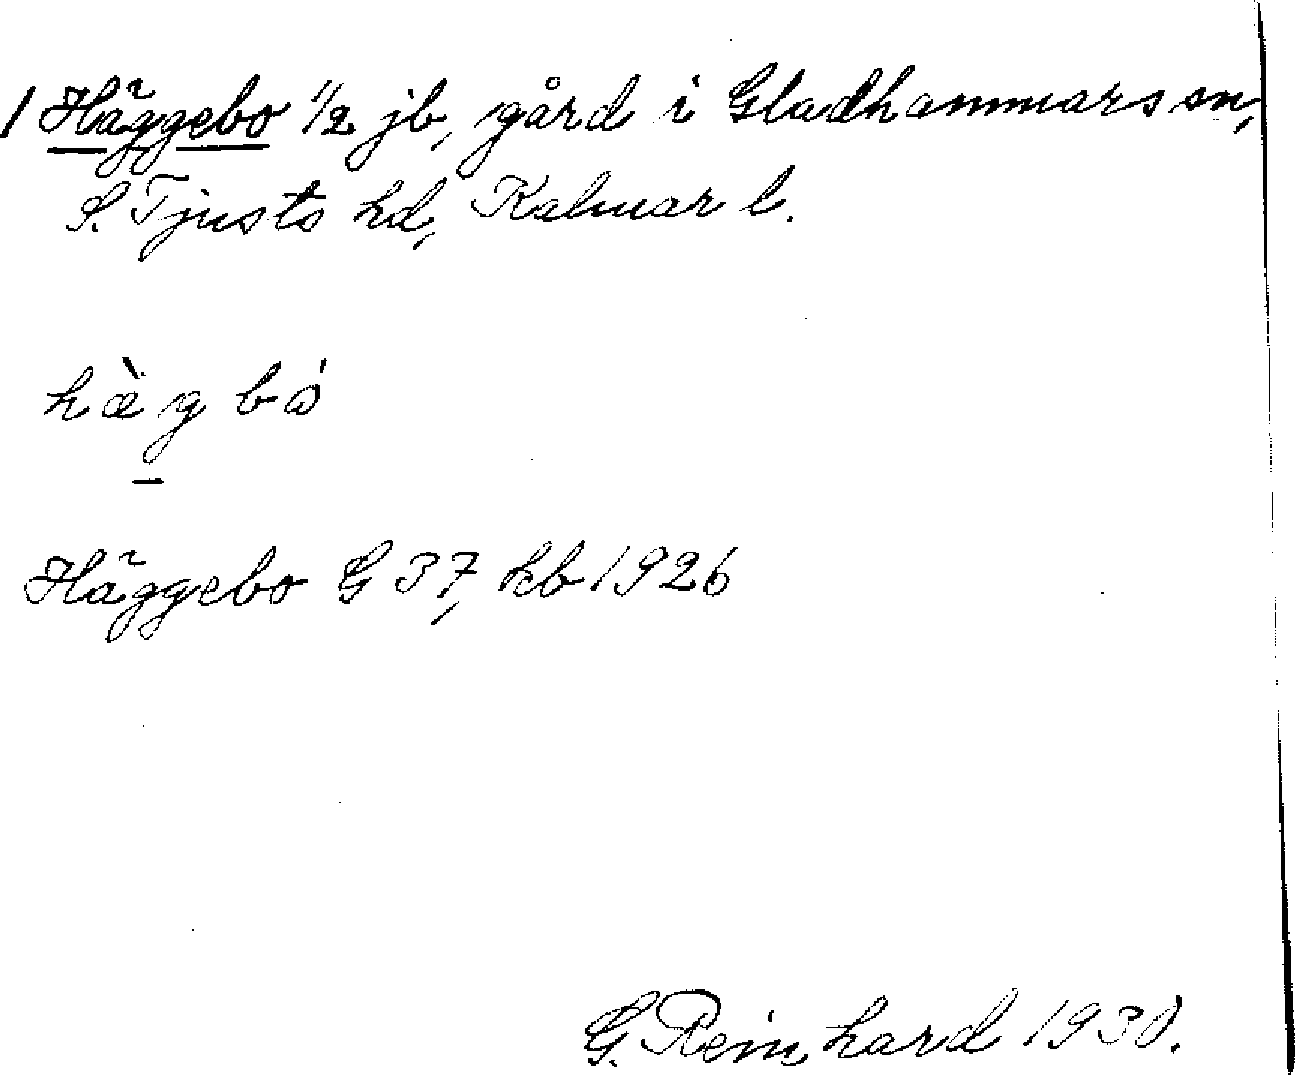 1 Häggebo 1/2 jb, gård i Gladhammars sn,
S. Tjusts hd, Kalmar l.
hæ̀g bó
Häggebo G 37, kb 1926
G. Reinhard 1930.